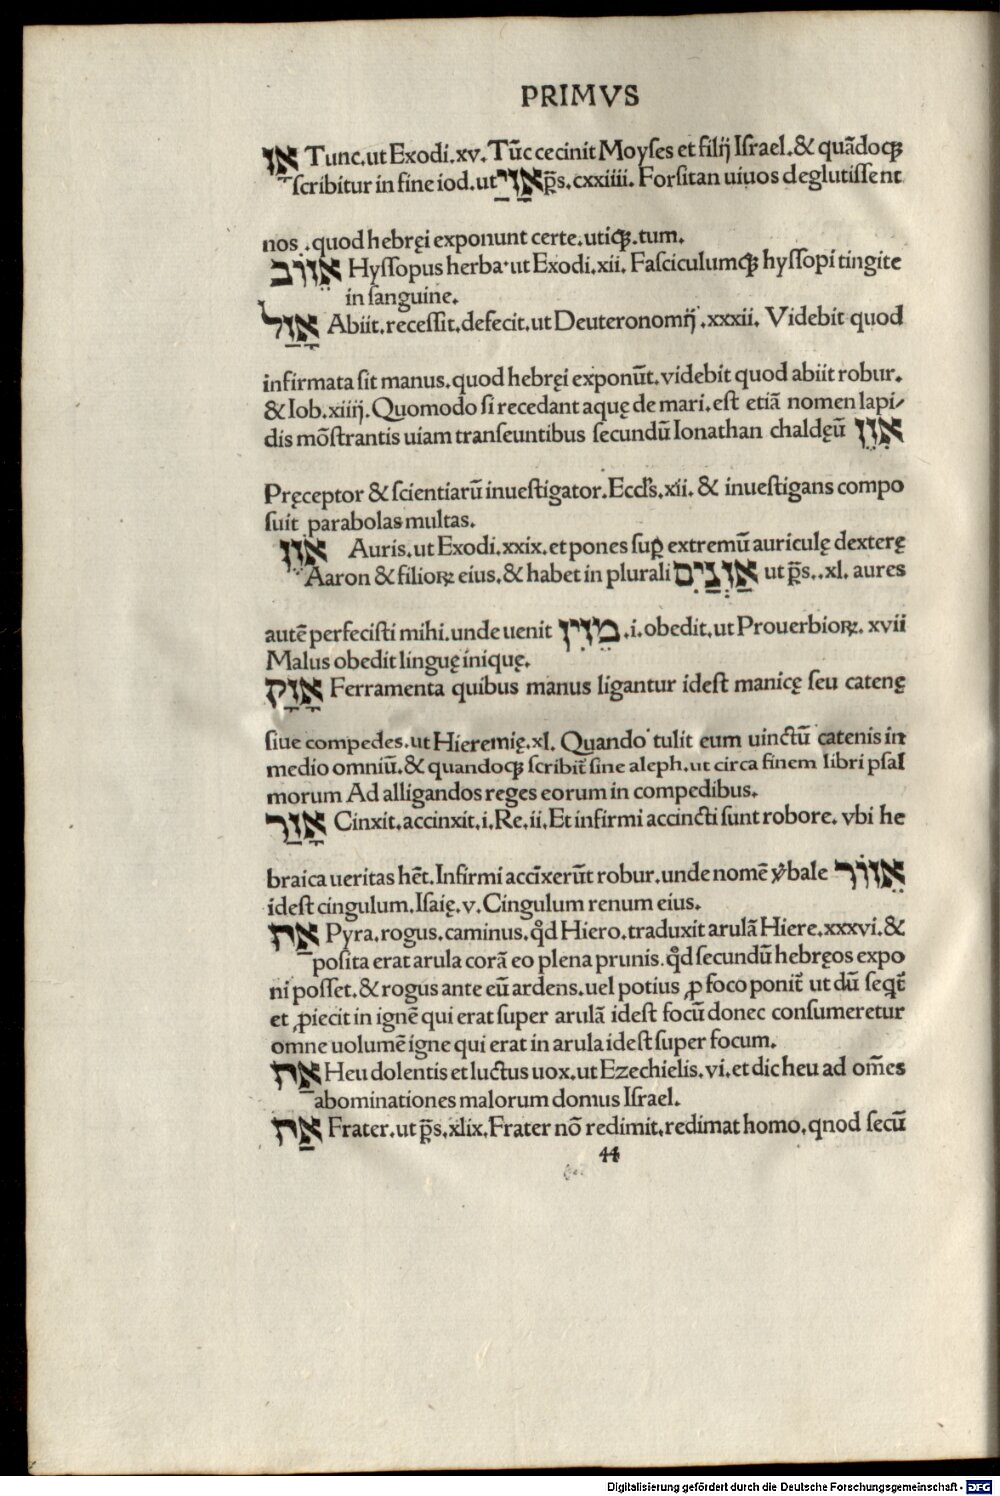 PRIMVS
אָז Tunc.ut Exodi.xv.Tūc cecinit Moyses et filij Israel.& quādocꝫ
scribitur in fine iod.ut אֲזַי p̄s.cxxiiii. Forsitan uiuos deglutissent
nos .quod hebręi exponunt certe.utiqꝫ.tum.
אֵזוֹב Hyssopus herba.ut Exodi.xii. Fasciculumqꝫ hyssopi tingite
in sanguine.
אָזַל Abiit.recessit.defecit.ut Deuteronomij .xxxii. Videbit quod
infirmata sit manus.quod hebręi exponūt.videbit quod abiit robur.
& Iob.xiiij.Quomodo si recedant aquę de mari.est etiā nomen lapi/
dis mōstrantis uiam transeuntibus secundū Ionathan chaldęū אִזֵן
Pręceptor & scientiarū inuestigator.Eccl's.xii. & inuestigans compo
suit parabolas multas.
אֹזֶן Auris.ut Exodi.xxix.et pones sup̱ extremū auriculę dexterę
Aaron & filioꝝ eius.& habet in plurali אָזְנַיִם ut p̄s..xl. aures
autē perfecisti mihi.unde uenit מֵזִין .i.obedit.ut Prouerbioꝝ. xvii
Malus obedit linguę iniquę.
אָזָק Ferramenta quibus manus ligantur idest manicę seu catenę
siue compedes.ut Hieremię.xl. Quando tulit eum uinctū catenis in
medio omniū.& quandoqꝫ scribit̄ sine aleph.ut circa finem libri psal
morum Ad alligandos reges eorum in compedibus.
אָזַר Cinxit.accinxit.i.Re.ii.Et infirmi accincti sunt robore. vbi he
braica ueritas hēt.Infirmi accīxerūt robur.unde nomē v̓bale אֵזוֹר
idest cingulum.Isaię.v.Cingulum renum eius.
אַח Pyra.rogus.caminus.qd̓ Hiero.traduxit arulā Hiere.xxxvi.&
posita erat arula corā eo plena prunis.qd̓ secundū hebręos expo
ni posset.& rogus ante eū ardens.uel potius ꝓ foco ponit̄ ut dū seqt̄
et ꝓiecit in ignē qui erat super arulā idest focū donec consumeretur
omne uolumē igne qui erat in arula idest super focum.
אַח Heu dolentis et luctus uox.ut Ezechielis.vi.et dic heu ad om̄es
abominationes malorum domus Israel.
אַח Frater.ut p̄s.xlix.Frater nō redimit.redimat homo.qnod secū
44
Digitalisierung gefördert durch die Deutsche Forschungsgemeinschaft - DFG